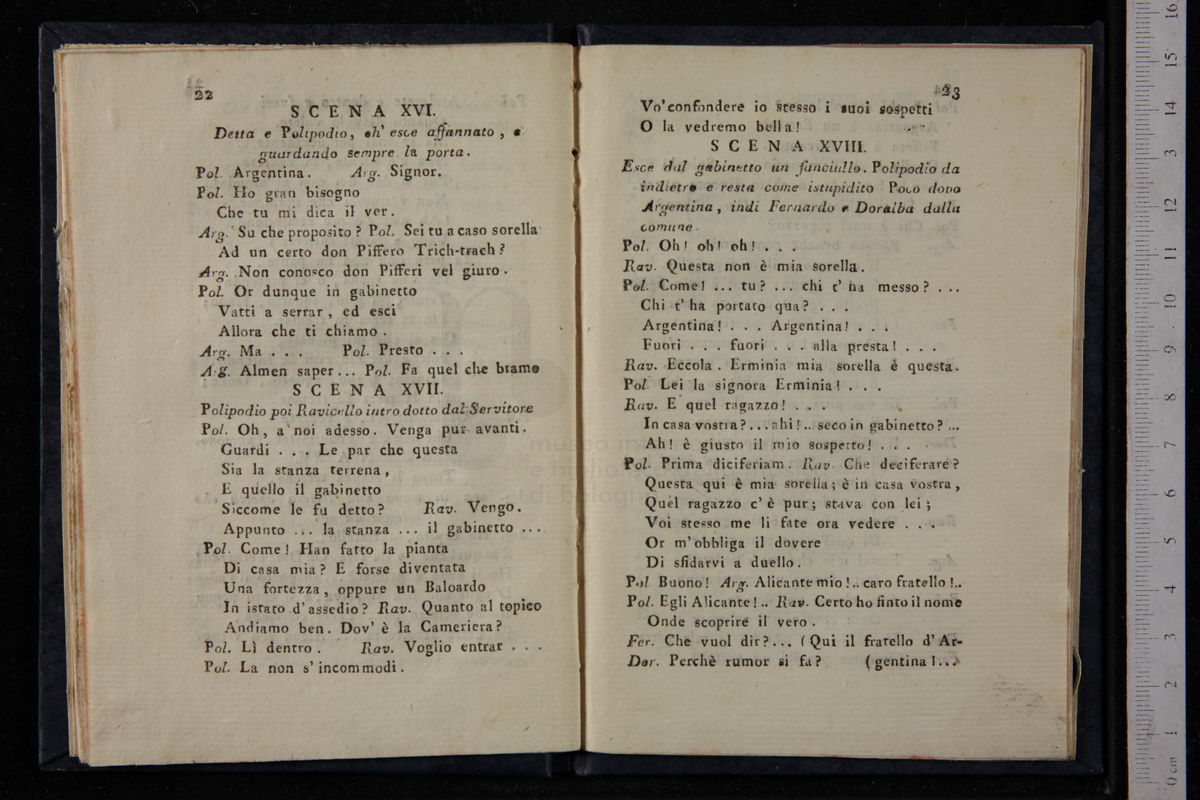 22
SCENA XVI.
Detta e Polipodio, ch' esce affannato, e
guardando sempre la porta.
Pol. Argentina. Arg. Signor.
Pol. Ho gran bisogno
Che tu mi dica il ver.
Arg. Su che proposito? Pol. Sei tu a caso sorella
Ad un certo don Piffero Trich-trach?
Arg. Non conosco don Pifferi vel giuro.
Pol. Or dunque in gabinetto
Vatti a serrar, ed esci
Allora che ti chiamo.
Arg. Ma . . . Pol. Presto . . .
Arg. Almen saper... Pol. Fa quel che bramo
SCENA XVII.
Polipodio poi Ravicello introdotto dal Servitore
Pol. Oh, a noi adesso. Venga pur avanti.
Guardi . . . Le par che questa
Sia la stanza terrena,
E quello il gabinetto
Siccome le fu detto? Rav. Vengo.
Appunto ... la stanza ... il gabinetto ...
Pol. Come! Han fatto la pianta
Di casa mia? E forse diventata
Una fortezza, oppure un Baloardo
In istato d'assedio? Rav. Quanto al topico
Andiamo ben. Dov' è la Cameriera?
Pol. Lì dentro. Rav. Voglio entrar . . .
Pol. La non s'incommodi.
23
Vo' confondere io stesso i suoi sospetti
O la vedremo bella!
SCENA XVIII.
Esce dal gabinetto un fanciullo. Polipodio da
indietro e resta come istupidito Poco dopo
Argentina, indi Fernardo e Doralba dalla
comune.
Pol. Oh! oh! oh! . . .
Rav. Questa non è mia sorella.
Pol. Come! ... tu? ... chi t' ha messo? ...
Chi t' ha portato qua? . . .
Argentina! . . . Argentina! . . .
Fuori . . . fuori . . . alla presta! . . .
Rav. Eccola. Erminia mia sorella è questa.
Pol. Lei la signora Erminia! . . .
Rav. E quel ragazzo! . . .
In casa vostra?...ahi!... seco in gabinetto? ...
Ah! è giusto il mio sospetto! . . .
Pol. Prima diciferiam. Rav. Che deciferare?
Questa qui è mia sorella; è in casa vostra,
Quel ragazzo c' è pur; stava con lei;
Voi stesso me li fate ora vedere . . .
Or m'obbliga il dovere
Di sfidarvi a duello.
Pol. Buono! Arg. Alicante mio!.. caro fratello!..
Pol. Egli Alicante!.. Rav. Certo ho finto il nome
Onde scoprire il vero.
Fer. Che vuol dir?... (Qui il fratello d'Ar-
Dor. Perchè rumor si fa? (gentina!...
museo in
e biblio
di bologn
0 cm 1 2 3 4 5 6 7 8 9 10 11 12 13 14 15 16